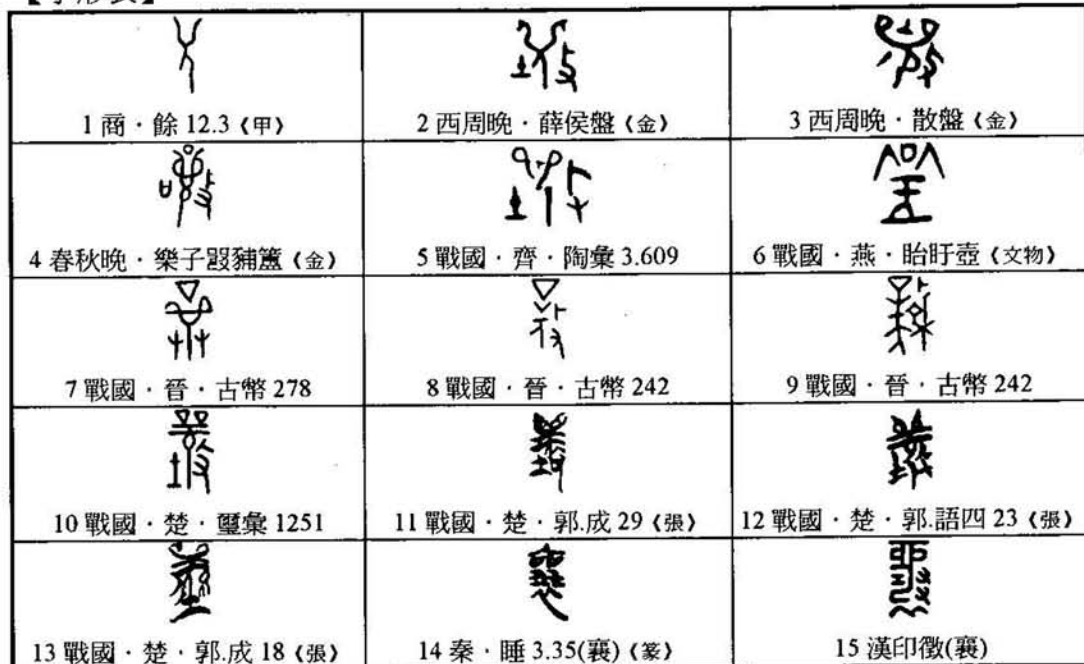 1 商．餘 12.3《甲》
2 西周晚．薛侯盤《金》
3 西周晚．散盤《金》
4 春秋晚．樂子㗊豧簠《金》
5 戰國．齊．陶彙 3.609
6 戰國．燕．眙盱壺《文物》
7 戰國．晉．古幣 278
8 戰國．晉．古幣 242
9 戰國．晉．古幣 242
10 戰國．楚．璽彙 1251
11 戰國．楚．郭.成 29《張》
12 戰國．楚．郭.語四 23《張》
13 戰國．楚．郭.成 18《張》
14 秦．睡 3.35(襄)《篆》
15 漢印徵(襄)